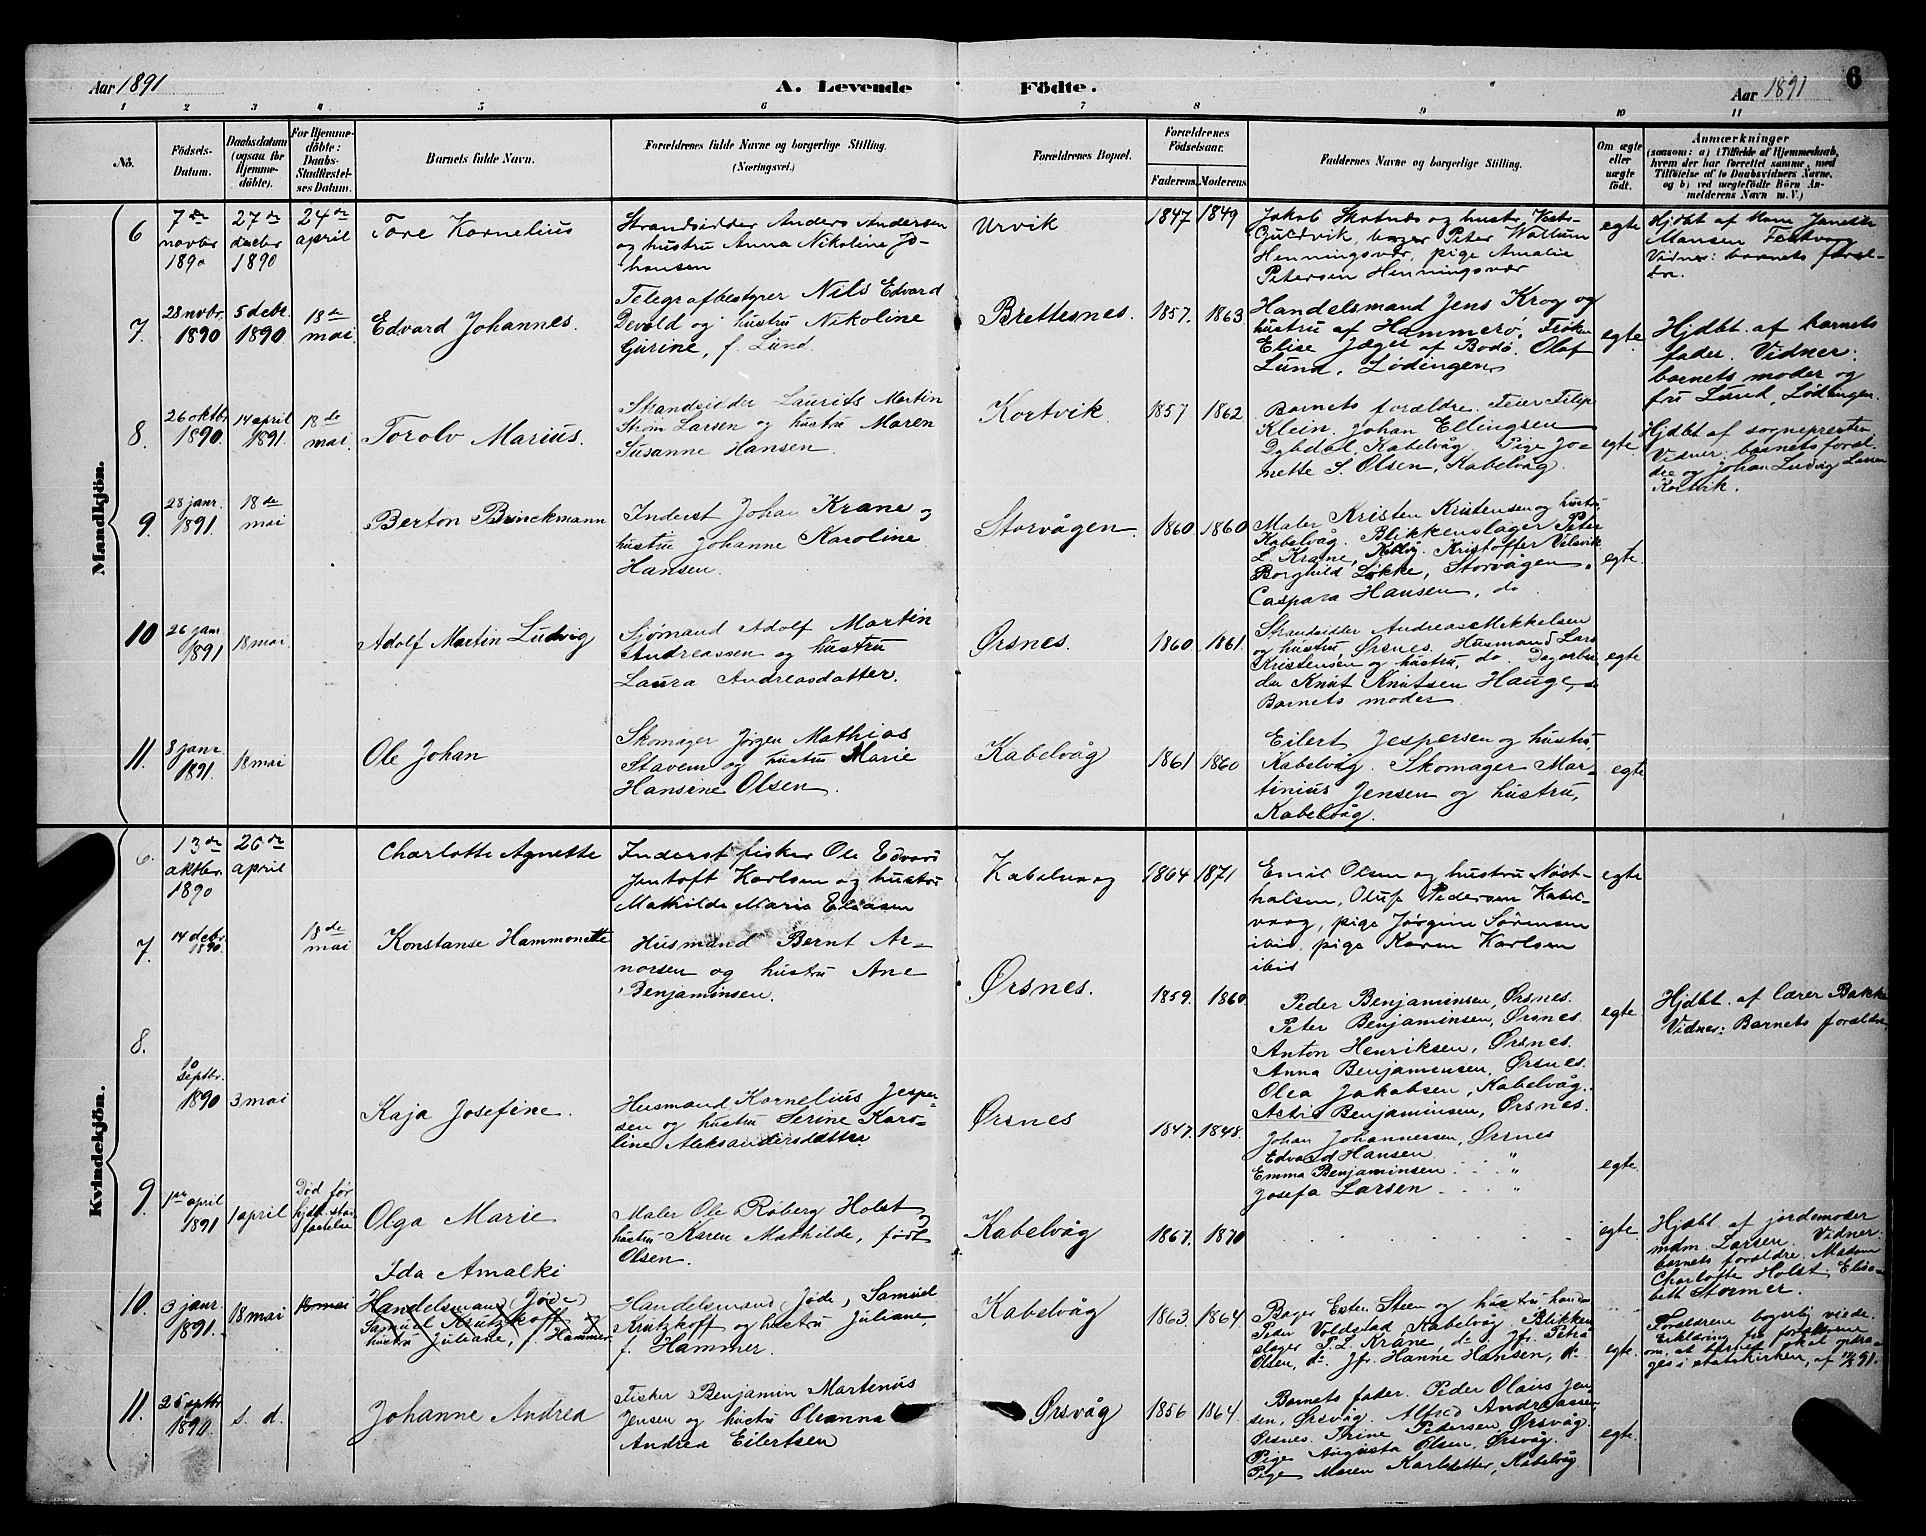 Aar 1891
A. Levende
Födte.
Aar 1891
6
1 2 3 4 5 6 7 8 9 10 11
No.
Födsels-
Datum.
Daabsdatum
(ogsaa for
Hjemme-
döbte).
For Hjemme-
döbte:
Daabs-
Stadfæstel-
ses Datum.
Barnets fulde Navn.
Forældrenes fulde Navne og borgerlige Stilling.
(Næringsvei.)
Forældrenes Bopæl.
Forældrenes
Födselsaar.
Faderens. Moderens.
Faddernes Navne og borgerlige Stilling.
Om ægte
eller
uægte
födt.
Anmærkninger
(saasom: a) i Tilfælde af Hjemmedaab,
hvem der har forrettet samme, med
Tilföielse af to Daabsvidners Navne,
og b) ved uægtefödte Börn An-
melderens Navn m. V.)
Mandkjön.
6
7de
novbr
1890
27de
decbr
1890
24de
april
Tore Kornelius
Strandsidder Anders Andersen
og hustru Anna Nikoline Jo-
hansen
Urvik
1847 1849
Jakob Skotnes og hustr,
Guldvik, bager Peter Wollum
Henningsvær, pige Amalie
Petersen Henningsvær
egte
Hjdbt af
Hansen Festvåg
Vidner: barnets foræl-
dre.
7.
28 novbr.
1890
5 debr.
1890
18de
mai
Edvard Johannes.
Telegrafbestyrer Nils Edvard
Devold og hustru Nikoline
Gurine, f. Lund.
Brettesnes.
1857. 1863.
Handelsmand Jens Krog og
hustru af Hammerø, Frøken
Elise Jæger af Bodø. Olaf
Lund, Lødingen
egte.
Hjdbt. af barnets
fader. Vidner:
barnets moder og
fru Lund, Lødingen.
8.
26 oktbr
1890.
14 april
1891.
18de
mai
Torolv Marius.
Strandsidder Laurits Martin
Strøm Larsen og hustru Maren
Susanne Hansen.
Kortvik
1857. 1862.
Barnets forældre. Feier Filip
Klein. Johan Ellingsen
Dybdal, Kabelvåg. Pige Jo-
nette S. Olsen, Kabelvåg.
egte.
Hjdbt af sognepresten
Vidner: barnets foræl-
dre og Johan Ludvig Larsen
Kortvik.
9.
28 janr.
1891.
18de
mai
Berton Brinckmann
Inderst Johan Krane og
hustru Johanne Karoline
Hansen.
Storvågen
1860. 1860.
Maler Kristen Kristensen og hustru
Kabelvåg. Blikkenslager Peter
L. Krane, Kblvg. Kristoffer
Borghild Løkke, Storvågen.
Caspara Hansen, do
egte.
10
26 janr
1891
18 mai
Adolf Martin Ludvig
Sjømand Adolf Martin
Andreassen og hustru
Laura Andreasdatter.
Ørsnes.
1860. 1861.
Strandsidder Andreas Mikkelsen
og hustru, Ørsnes. Husmand Lars
Kristensen og hustru, do. Dagarbei-
der Knut Knutsen Hauge,
Barnets moder
egte
11.
8 janr.
1891.
18 mai
Ole Johan
Skomager Jørgen Mathias
Stavem og hustru Marie
Hansine Olsen.
Kabelvåg
1861 1860
Eilert Jespersen og hustru,
Kabelvåg. Skomager Mar-
tinius Jensen og hustru,
Kabelvåg.
egte
Kvindekjön.
6.
13de
oktbr.
1890
26de
april
Charlotte Agnette
Inderst fisker Ole Edvard
Jentoft Karlsen og hustru
Mathilde Marie Eliasen
Kabelvaag
1864 1871
Emil Olsen og hustru Næst-
halsen, Oluf Pedersen Kabel-
vaag, pige Jørgine Sørensen
ibid, pige Karen Karlsen
ibid
egte
7.
14 debr.
1890.
18de
mai
Konstanse Hammonette
Husmand Bernt Ar-
norsen og hustru Ane
Benjaminsen.
Ørsnes.
1859. 1860.
Peder Benjaminsen, Ørsnes.
Peter Benjaminsen, Ørsnes.
Anton Henriksen, Ørsnes.
Anna Benjaminsen, Ørsnes.
Olea Jakobsen, Kabelvåg.
Astri Benjaminsen, Ørsnes.
egte.
Hjdbt. af lærer Bakke
Vidner: Barnets forældre
8.
10
septbr.
1890
3 mai
Kaja Josefine.
Husmand Kornelius Jesper-
sen og hustru Serine Karo-
line Aleksandersdatter
Ørsnes
1847. 1848.
Johan Johannessen, Ørsnes
Edvard Hansen "
Emma Benjaminsen "
Josefa Larsen "
egte.
9.
1ste april
1891
1 april
Død før
hjdb. stad-
fæstelse
Olga Marie
Maler Ole Røberg Holst og
hustru Karen Mathilde, født
Olsen.
Kabelvåg
1867. 1870
egte
Hjdbt af jordemoder
mdm. Larsen. Vidner:
barnets forældre. Madam
Charlotte Holst, Elisa-
beth Stormer.
10.
3 janr.
1891.
18 mai
18 mai
Ida Amalki
Handelsmand (Jøde)
Samuel Krutzkoff og
hustru Juliane, f. Hammer
Handelsmand (Jøde) Samuel
Krutzkoff og hustru Juliane
f. Hammer.
Kabelvåg
1863. 1864
Bager Esten Steen og hustru
Peder Voldstad, Kabelvåg, Blikken-
slager P. L. Krane, do Jfr. Petra
Olsen, do. Jfr. Hanne Hansen, do
egte.
Forældrene bogerlig viede.
Erklæring fra forældrene
om, at barnet skal opdra-
ges i statskirken, af 91.
11.
25 septbr
1890.
s. d.
Johanne Andrea
Fisker Benjamin Martenus
Jensen og hustru Oleanna
Andrea Eilertsen
Ørsvåg
1856 1864.
Barnets fader. Peder Olaus Jen-
sen, Ørsvåg. Alfred Andreassen
Ørsnes. Trine Pedersen, Ørsvåg.
Pige Augusta Olsen, Ørsvåg.
Pige Maren Karlsdatter, Kabelvåg
egte.